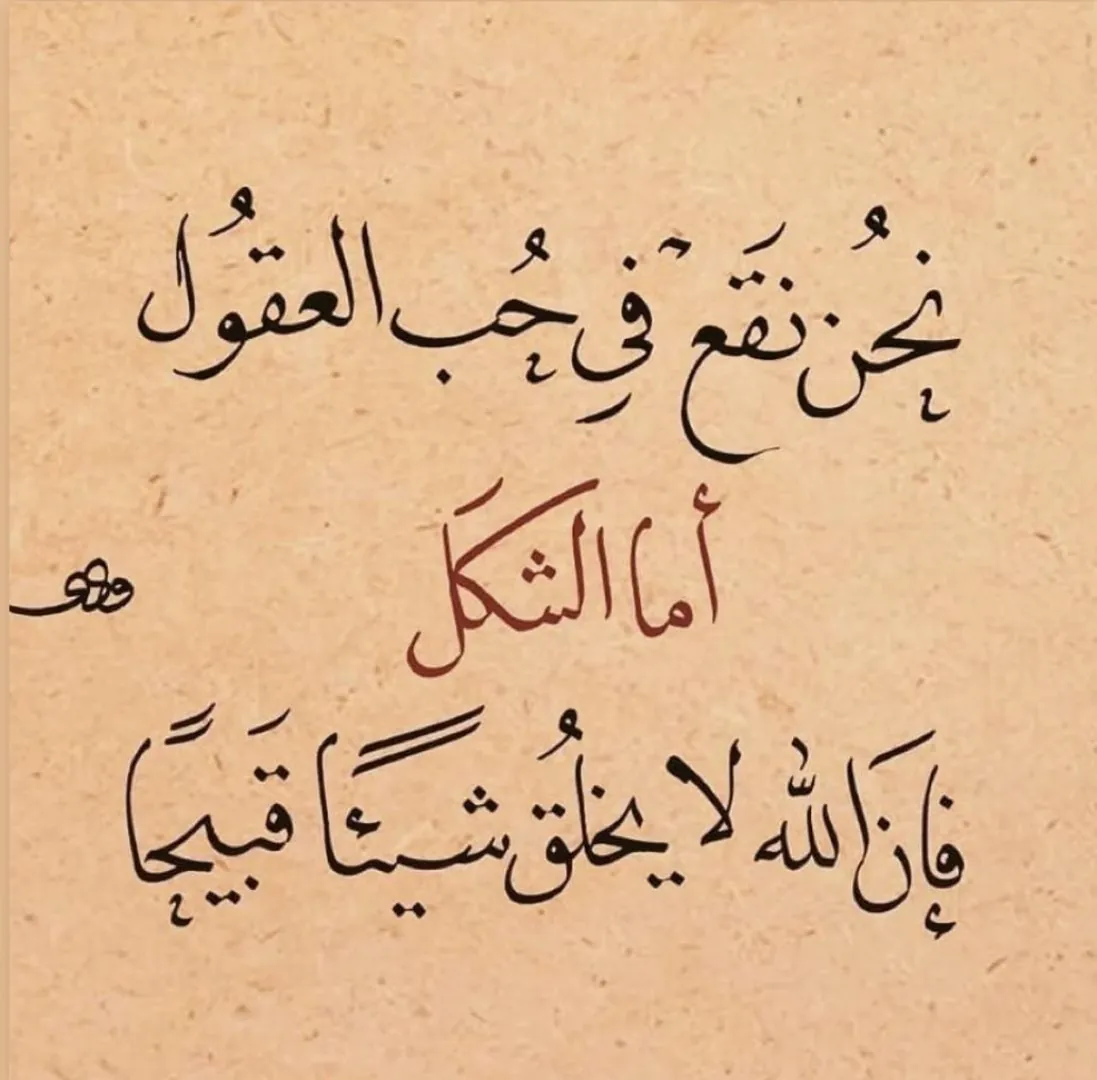 نَحُن نقَع في حُب العقُول
أما الشكَل
فإنَ الله لا يخلُق شيئًا قَبيحًا